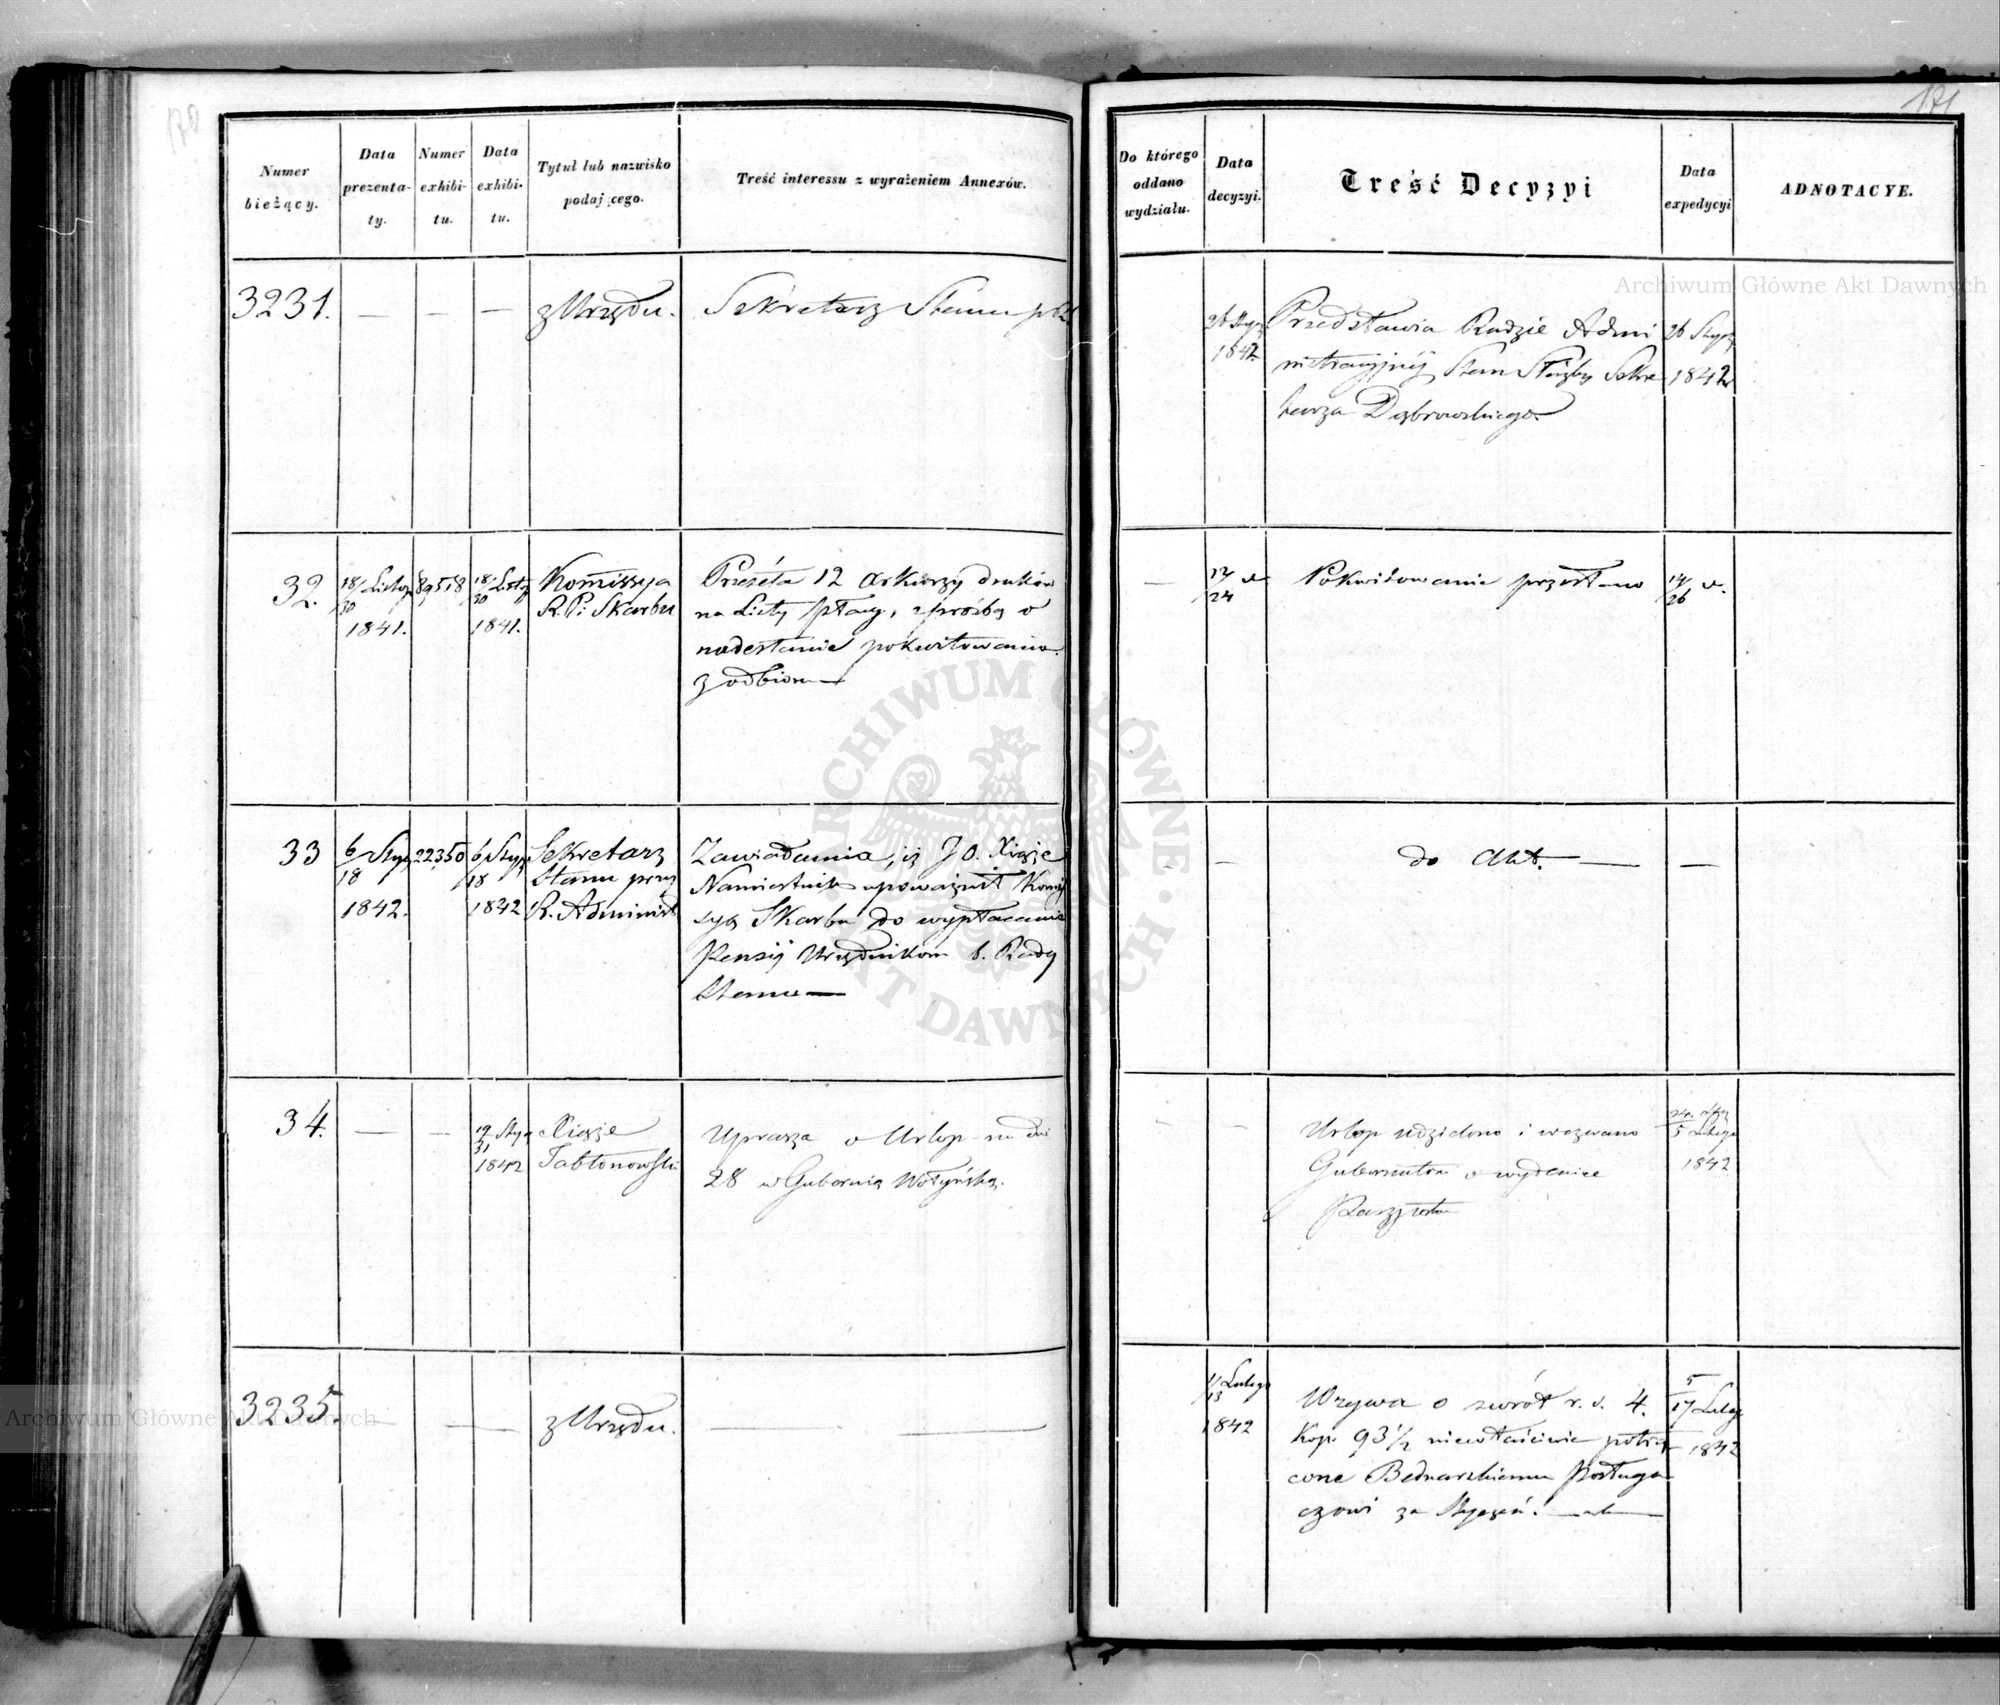 170
171
Numer
bieżący.
Data
prezenta-
ty.
Numer
exhibi-
tu.
Data
exhibi-
tu.
Tytuł lub nazwisko
podaj cego.
Treść interessu z wyrażeniem Annexów.
Do którego
oddano
wydziału.
Data
decyzyi.
Treść Decyzyi
Data
expedycyi
ADNOTACYE.
3231.
z Urzędu.
Sekretarz Stanu
26 Stycz
1842.
Przedstawia Radzie Admi
nistracyjnéj Stan Służby Sekre
tarza Dąbrowskiego.
26 Stycz
1842
32.
18/30 Listop
1841.
89518
18/30 Listp
1841.
Kommissya
R. P. i Skarbu
Przeséła 12 arkuszy druków
na Listy płacy, z prośbą o
nadesłanie pokwitowania
z odbioru
12/24
Pokwitowanie przesłano
14/26
33
6/18 Stycz
1842.
22350
6/18 Stycz
1842
Sekretarz
Stanu przy
R. Administ
Zawiadamia, iż J. O. Xiąże
Namiestnik upoważnił Kommis
syą Skarbu do wypłacania
Pensij Urzędnikom b. Rady
Stanu
do Akt.
34.
19/31 Stycz
1842
Xiąże
Jabłonowski
Uprasza o Urlop na dni
28 w Gubernią Wołyńską.
Urlop udzielono i wezwano
Gubernatora o wydanie
Paszportu
24 Stycz
5 Lutego
1842
3235
z Urzędu.
1/13 Lutego
1842
Wzywa o zwrót r. s. 4.
Kop. 93 1/2 niewłaściwie potrą
cone Bednarskiemu Posługa
czowi za Styczeń.
5
17 Lutego
1842
Archiwum Główne Akt Dawnych
Archiwum Główne Akt Dawnych
ARCHIWUM GŁÓWNE AKT DAWNYCH